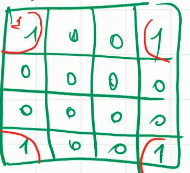 1 1 0 0 1
0 0 0 0
0 0 0 0
1 0 0 1